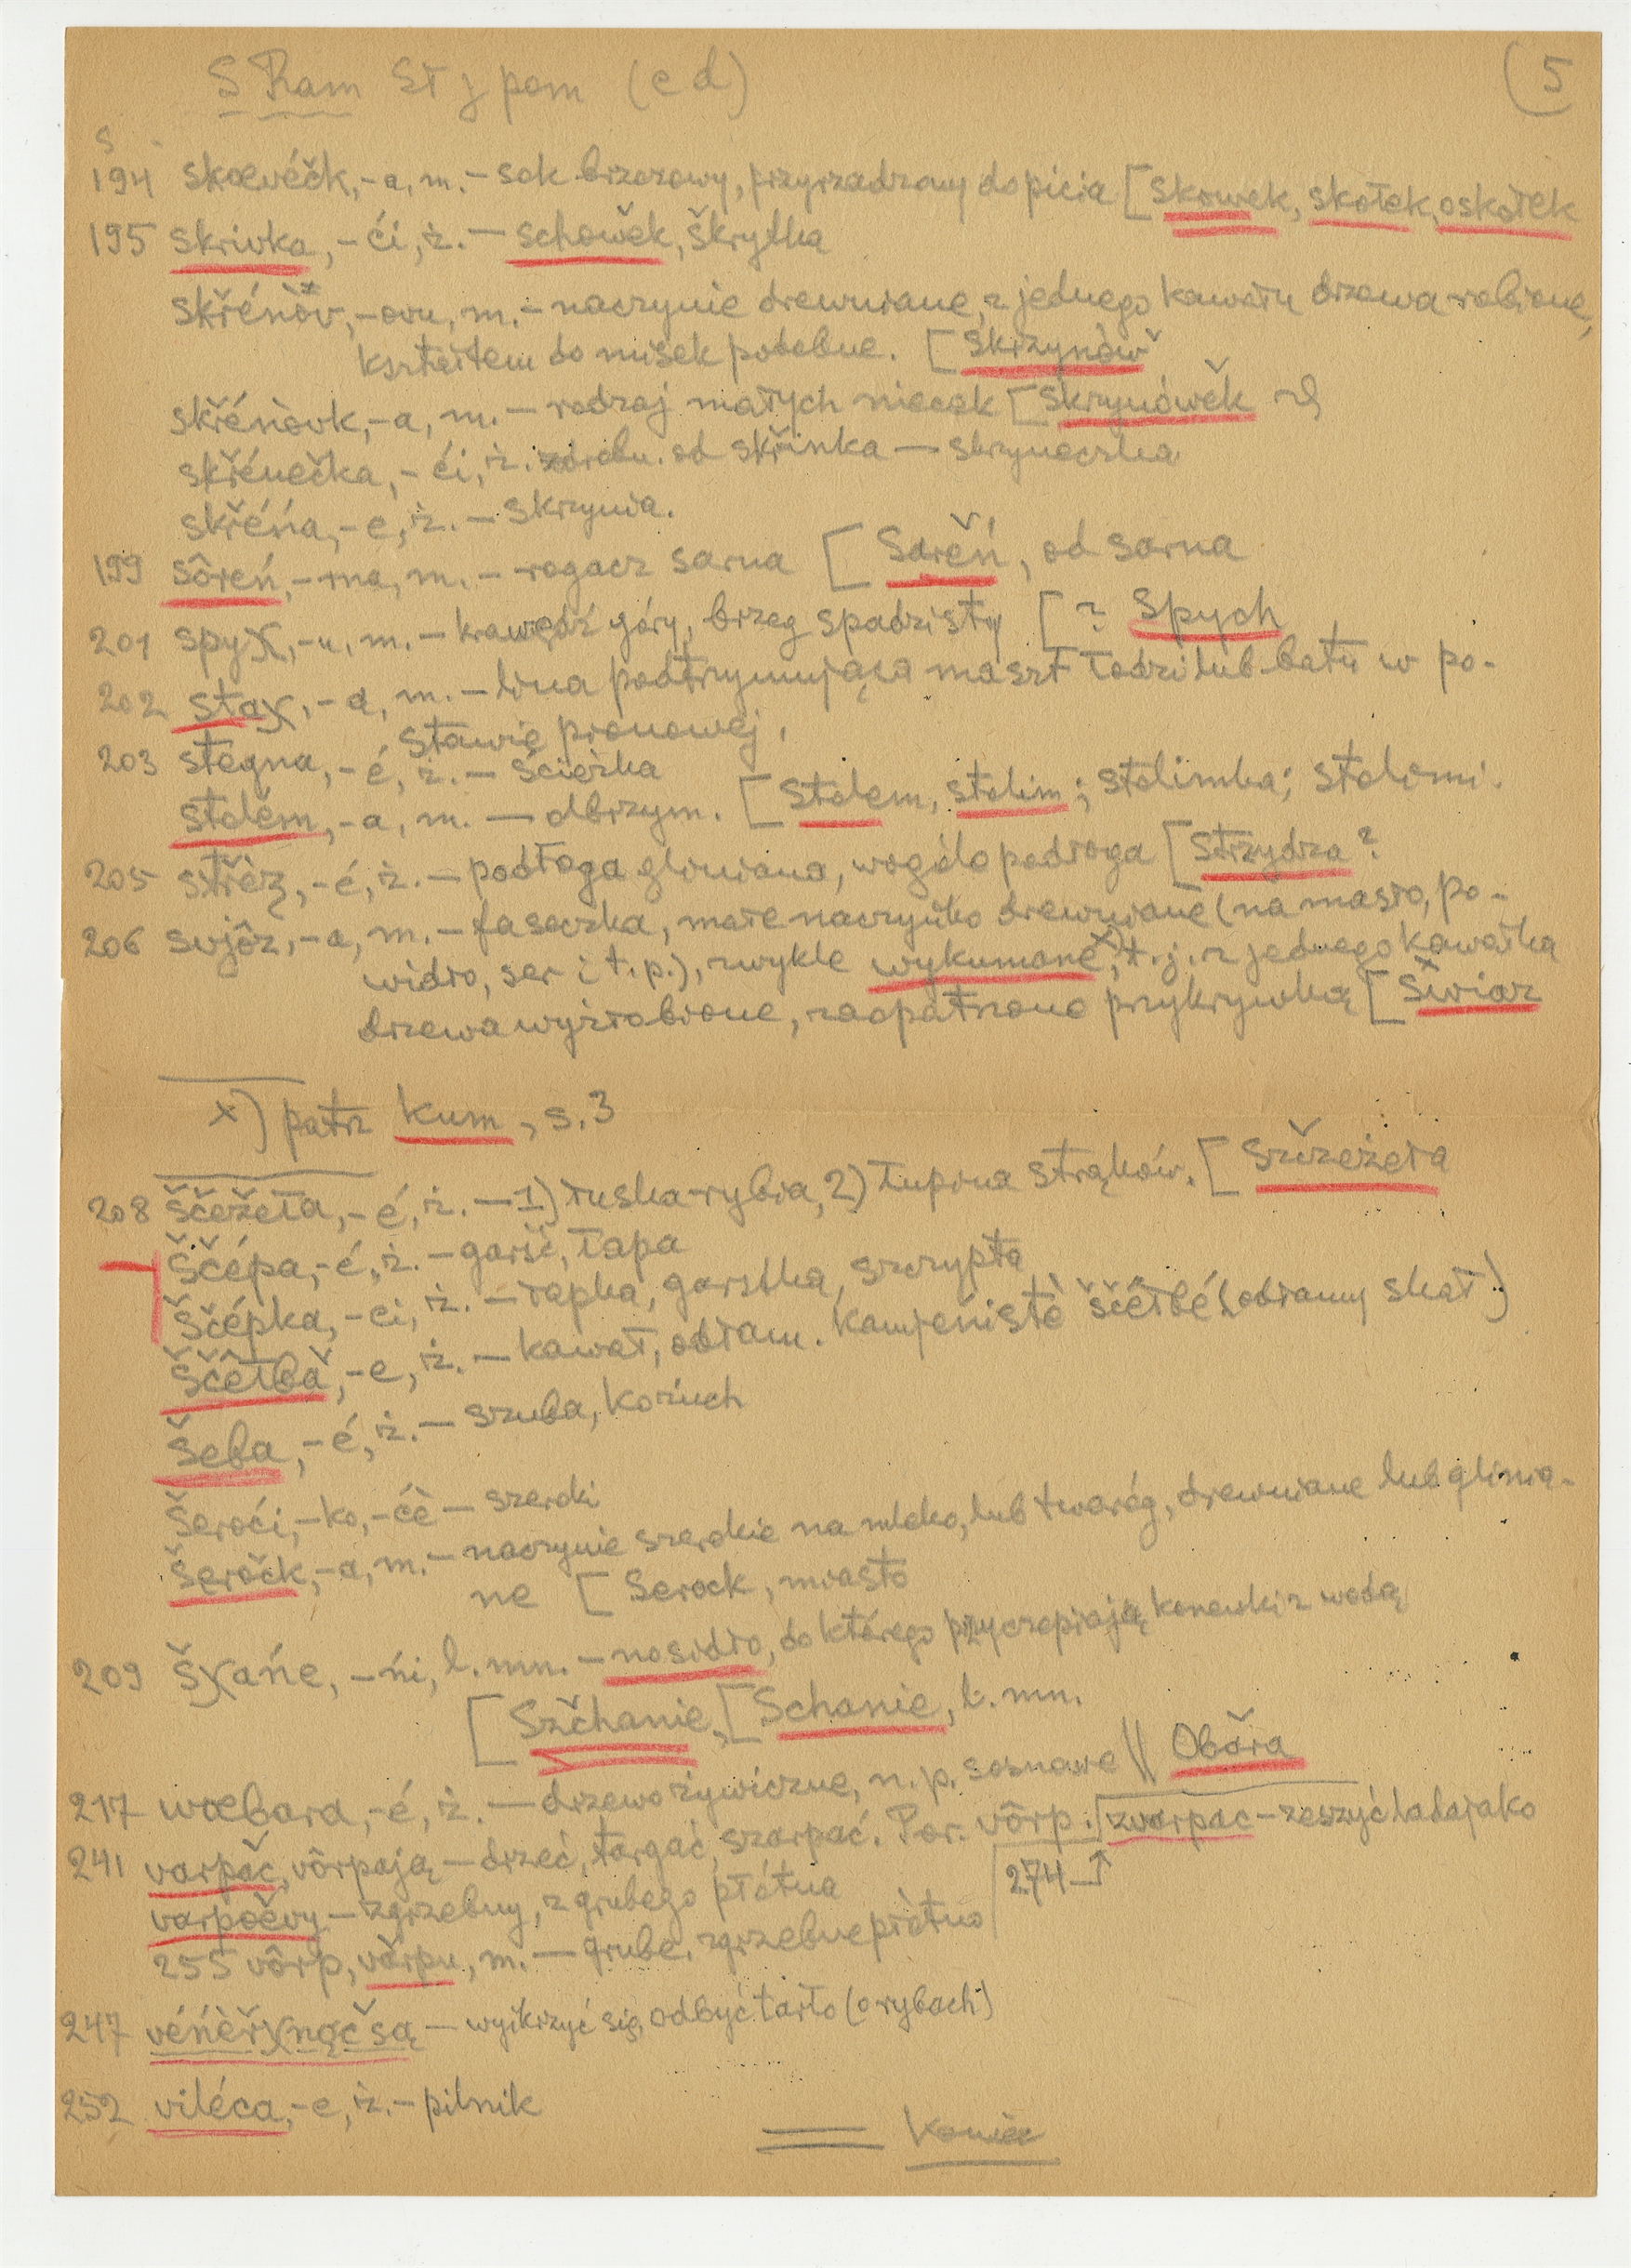 S Ram St j pom (cd) (5
s
194 skœvéčk, -a, m. - sok brzozowy, przyrządzony do picia [skowek, skołek, oskołek
195 skrivka, -ći, ż. - schowek, skrytka
skřénòv, -ovu, m. - naczynie drewniane, z jednego kawału drzewa robione,
kształtem do misek podobne. [skrzynòw
skřénòvk, -a, m. - rodzaj małych niecek [skrzynówek
skřénečka, -ći, ż. zdrobn. od skřinka - skrzyneczka
skřéńa, -e, ż. - skrzynia.
199 sôreń, -rna, m. - rogacz sarna [Sareń, od sarna
201 spyχ, -u, m. - krawędź góry, brzeg spadzisty [? Spych
202 staχ, -a, m. - lina podtrzymująca maszt łodzi lub batu w po-
stawie pionowej.
203 stegna, -é, ż. - ścieżka
stolém, -a, m. - olbrzym. [Stolem, stolim; stolimka; stolemi.
205 střéʒ, -é, ż. - podłoga gliniana, wogóle podłoga [Strzydza?
206 svjôr, -a, m. - faseczka, małe naczyńko drewniane (na masło, po-
widło, ser i t. p.), zwykle wykumane x), t. j. z jednego kawałka
drzewa wyżłobione, zaopatrzone przykrywką [Świar
x) patrz kum, s. 3
208 ščežeła, -é, ż. - 1) łuska rybia, 2) łupina strąków. [szczeżeła
ščépa, -é, ż. - garść, łapa
ščépka, -ci, ż. - łapka, garstka, szczypta
ščêłba, -e, ż. - kawał, odłam. Kamjeńistè ščéłbé (odłamy skał)
šeba, -é, ż. - szuba, kożuch
šeroći, -ko, -ćè - szeroki
šeročk, -a, m. - naczynie szerokie na mleko, lub twaróg, drewniane lub glinia-
ne [Serock, miasto
209 šχańe, -ńi, l. mn. - nosidło, do którego przyczepiają konewki z wodą
[Szchanie, [Schanie, l. mn.
217 wœbara, -é, ż. - drzewo żywiczne, n. p. sosnowe || Obařa
241 varpac, vôrpają - drzeć, targać, szarpać. Por. vôrp. zvarpac - zeszyć ladajako
varpœvy - zgrzebny, z grubego płótna 274
255 vôrp, vàrpu, m. - grube, zgrzebne płótno
247 véńèřχnąc są - wyikrzyć się, odbyć tarło (o rybach)
252 viléca, -e, ż. - pilnik
Koniec